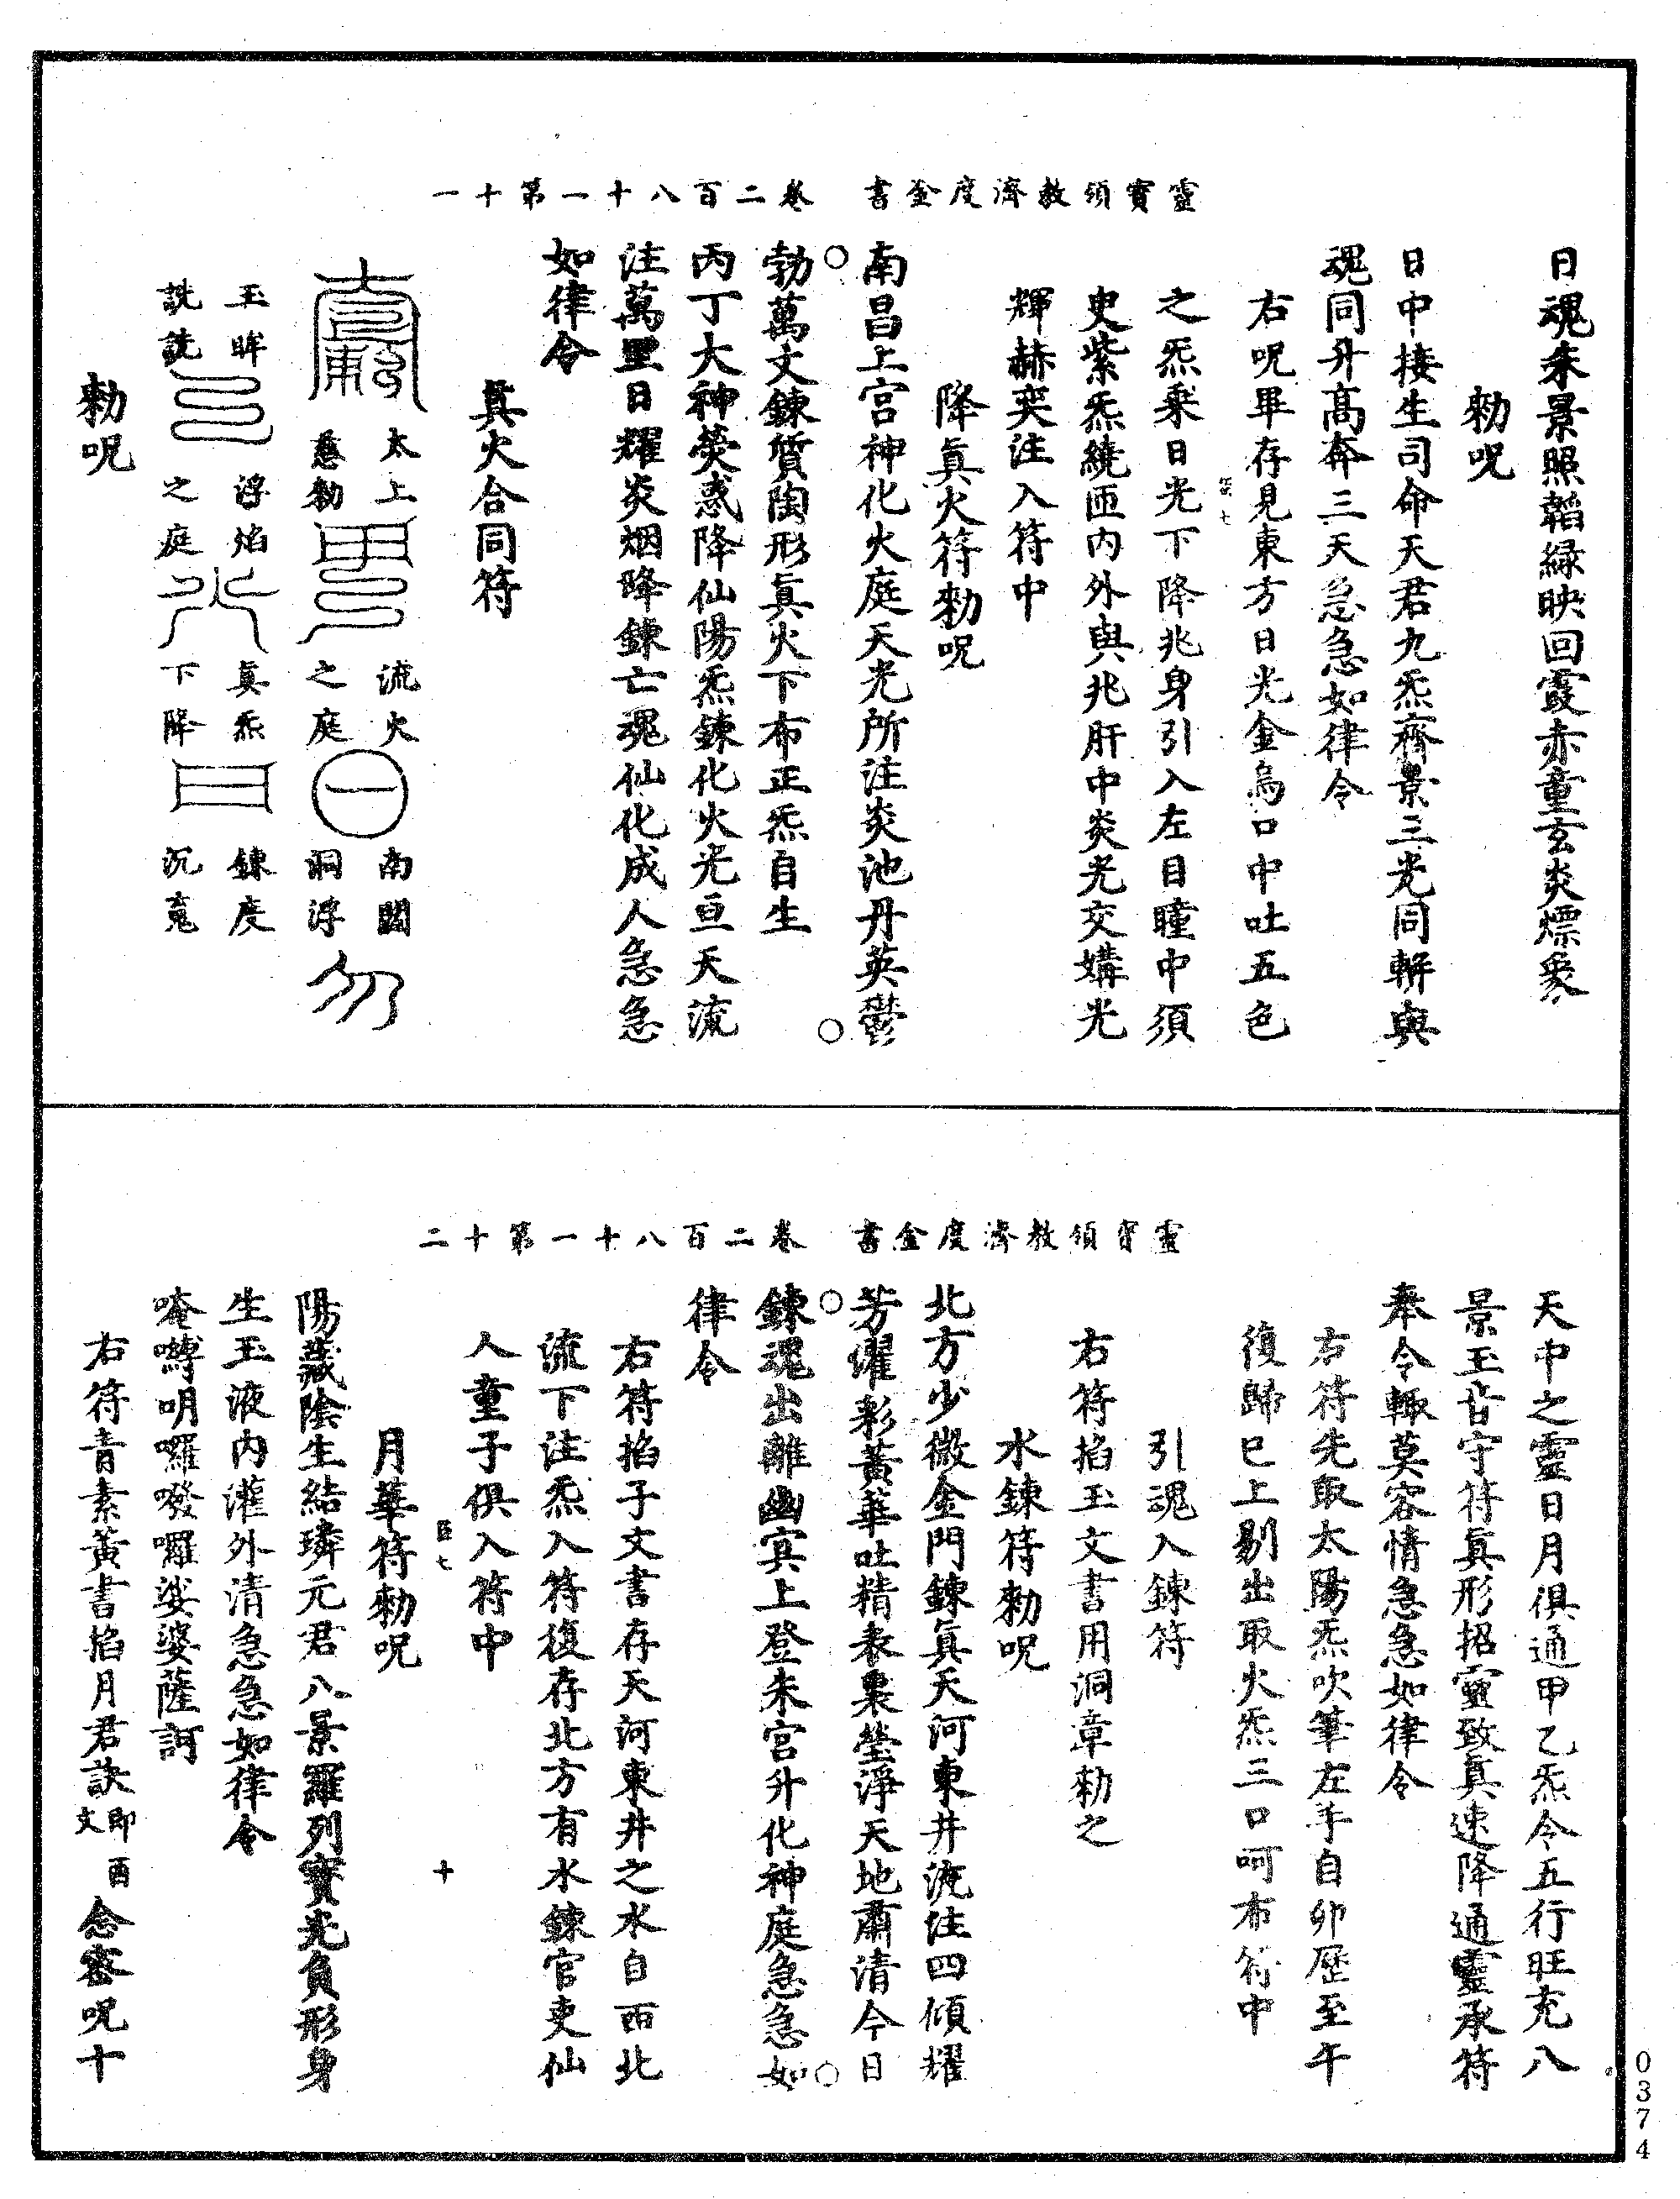 靈寳領教濟度金書　卷二百八十一第十一
日魂朱景照韜緑映回霞赤童玄炎熛象
勑呪
日中接生司命天君九炁齊景三光同軿與
魂同升高奔三天急急如律令
右呪畢存見東方日光金烏口中吐五色
之炁乗日光下降兆身引入左目瞳中須
臾紫炁繞匝内外與兆肝中炎光交媾光
輝赫奕注入符中
降眞火符勑呪
南昌上宫神化火庭天光所注炎池丹英鬱
勃萬丈鍊質陶形眞火下布正炁自生
丙丁大神熒惑降仙陽炁鍊化火光亘天流
注萬里日耀炎烟降鍊亡魂仙化成人急急
如律令
眞火合同符
太上
慈勑
流火
之庭
南閶
洞浮
玉眸
詵詵
浮焰
之庭
眞炁
下降
鍊度
沉魂
勑呪
靈寳領教濟度金書　卷二百八十一第十二
天中之靈日月俱通甲乙炁令五行旺充八
景玉旨守符眞形招靈致眞速降通靈承符
奉令輙莫容情急急如律令
右符先取太陽炁吹筆左手自卯歷至午
復歸巳上剔出取火炁三口呵布符中
引魂入鍊符
右符掐玉文書用洞章勑之
水鍊符勑呪
北方少微金門鍊眞天河東井流注四傾耀
芳濯彩黃華吐精表裏瑩淨天地肅清今日
鍊魂出離幽㝠上登朱宫升化神庭急急如
律令
右符掐子文書存天河東井之水自西北
流下注炁入符復存北方有水鍊官吏仙
人童子俱入符中
十
月華符勑呪
陽藏陰生結璘元君八景羅列寳光負形身
生玉液内灌外清急急如律令
唵嚩明囉㗶囉娑婆薩訶
右符青素黃書掐月君訣即酉文念密呪十
0374